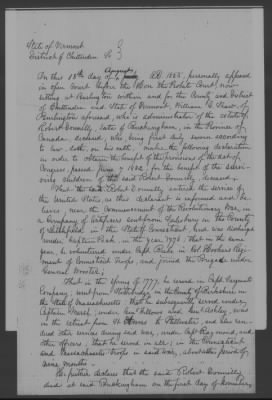 State of Vermont
District of Chittenden SS
On this 18th day of August, A.D. 1855, personally appeared
in open Court before the Hon the Probate Court, now
sitting at Burlington within and for the County and District
of Chittenden and State of Vermont, William G. Shaw, of
Burlington aforesaid, who is administrator of the estate of
Robert Donnelly, late of Buckingham, in the Province of
Canada, deceased, who, being first duly sworn according
to law, doth, on his oath, make the following declaration
in order to obtain the benefit of the provisions of the Act of
Congress, passed June 7, 1832, for the benefit of the
children of the said Robert Donnelly, deceased.
That the said Robert Donnelly entered the service of
the United States, as this declarant is informed and be-
lieves, near the commencement of the Revolutionary War, in
a Company of from Salisbury in the County
of Litchfield in the State of Connecticut, and was discharged
under Captain in the year 1776, that in the same
year, he volunteered under Capt. in Col. Regi-
ment of Connecticut Troops, and joined the Brigade under
General Wooster;
That in the Spring of 1777, he served in Capt
Company, went from in the County of Berkshire in
the State of Massachusetts, that he subsequently served under
Captain under Gen Fellows and Gen Ashley, was
in the retreat from to Stillwater, and has ren-
dered other services during said war, under Capt Raymond, and
other officers; that he served in all, in the Connecticut
and Massachusetts Troops in said war, about the period of
months.
He further declares that the said Robert Donnelly
died at said Buckingham on the first day of November,